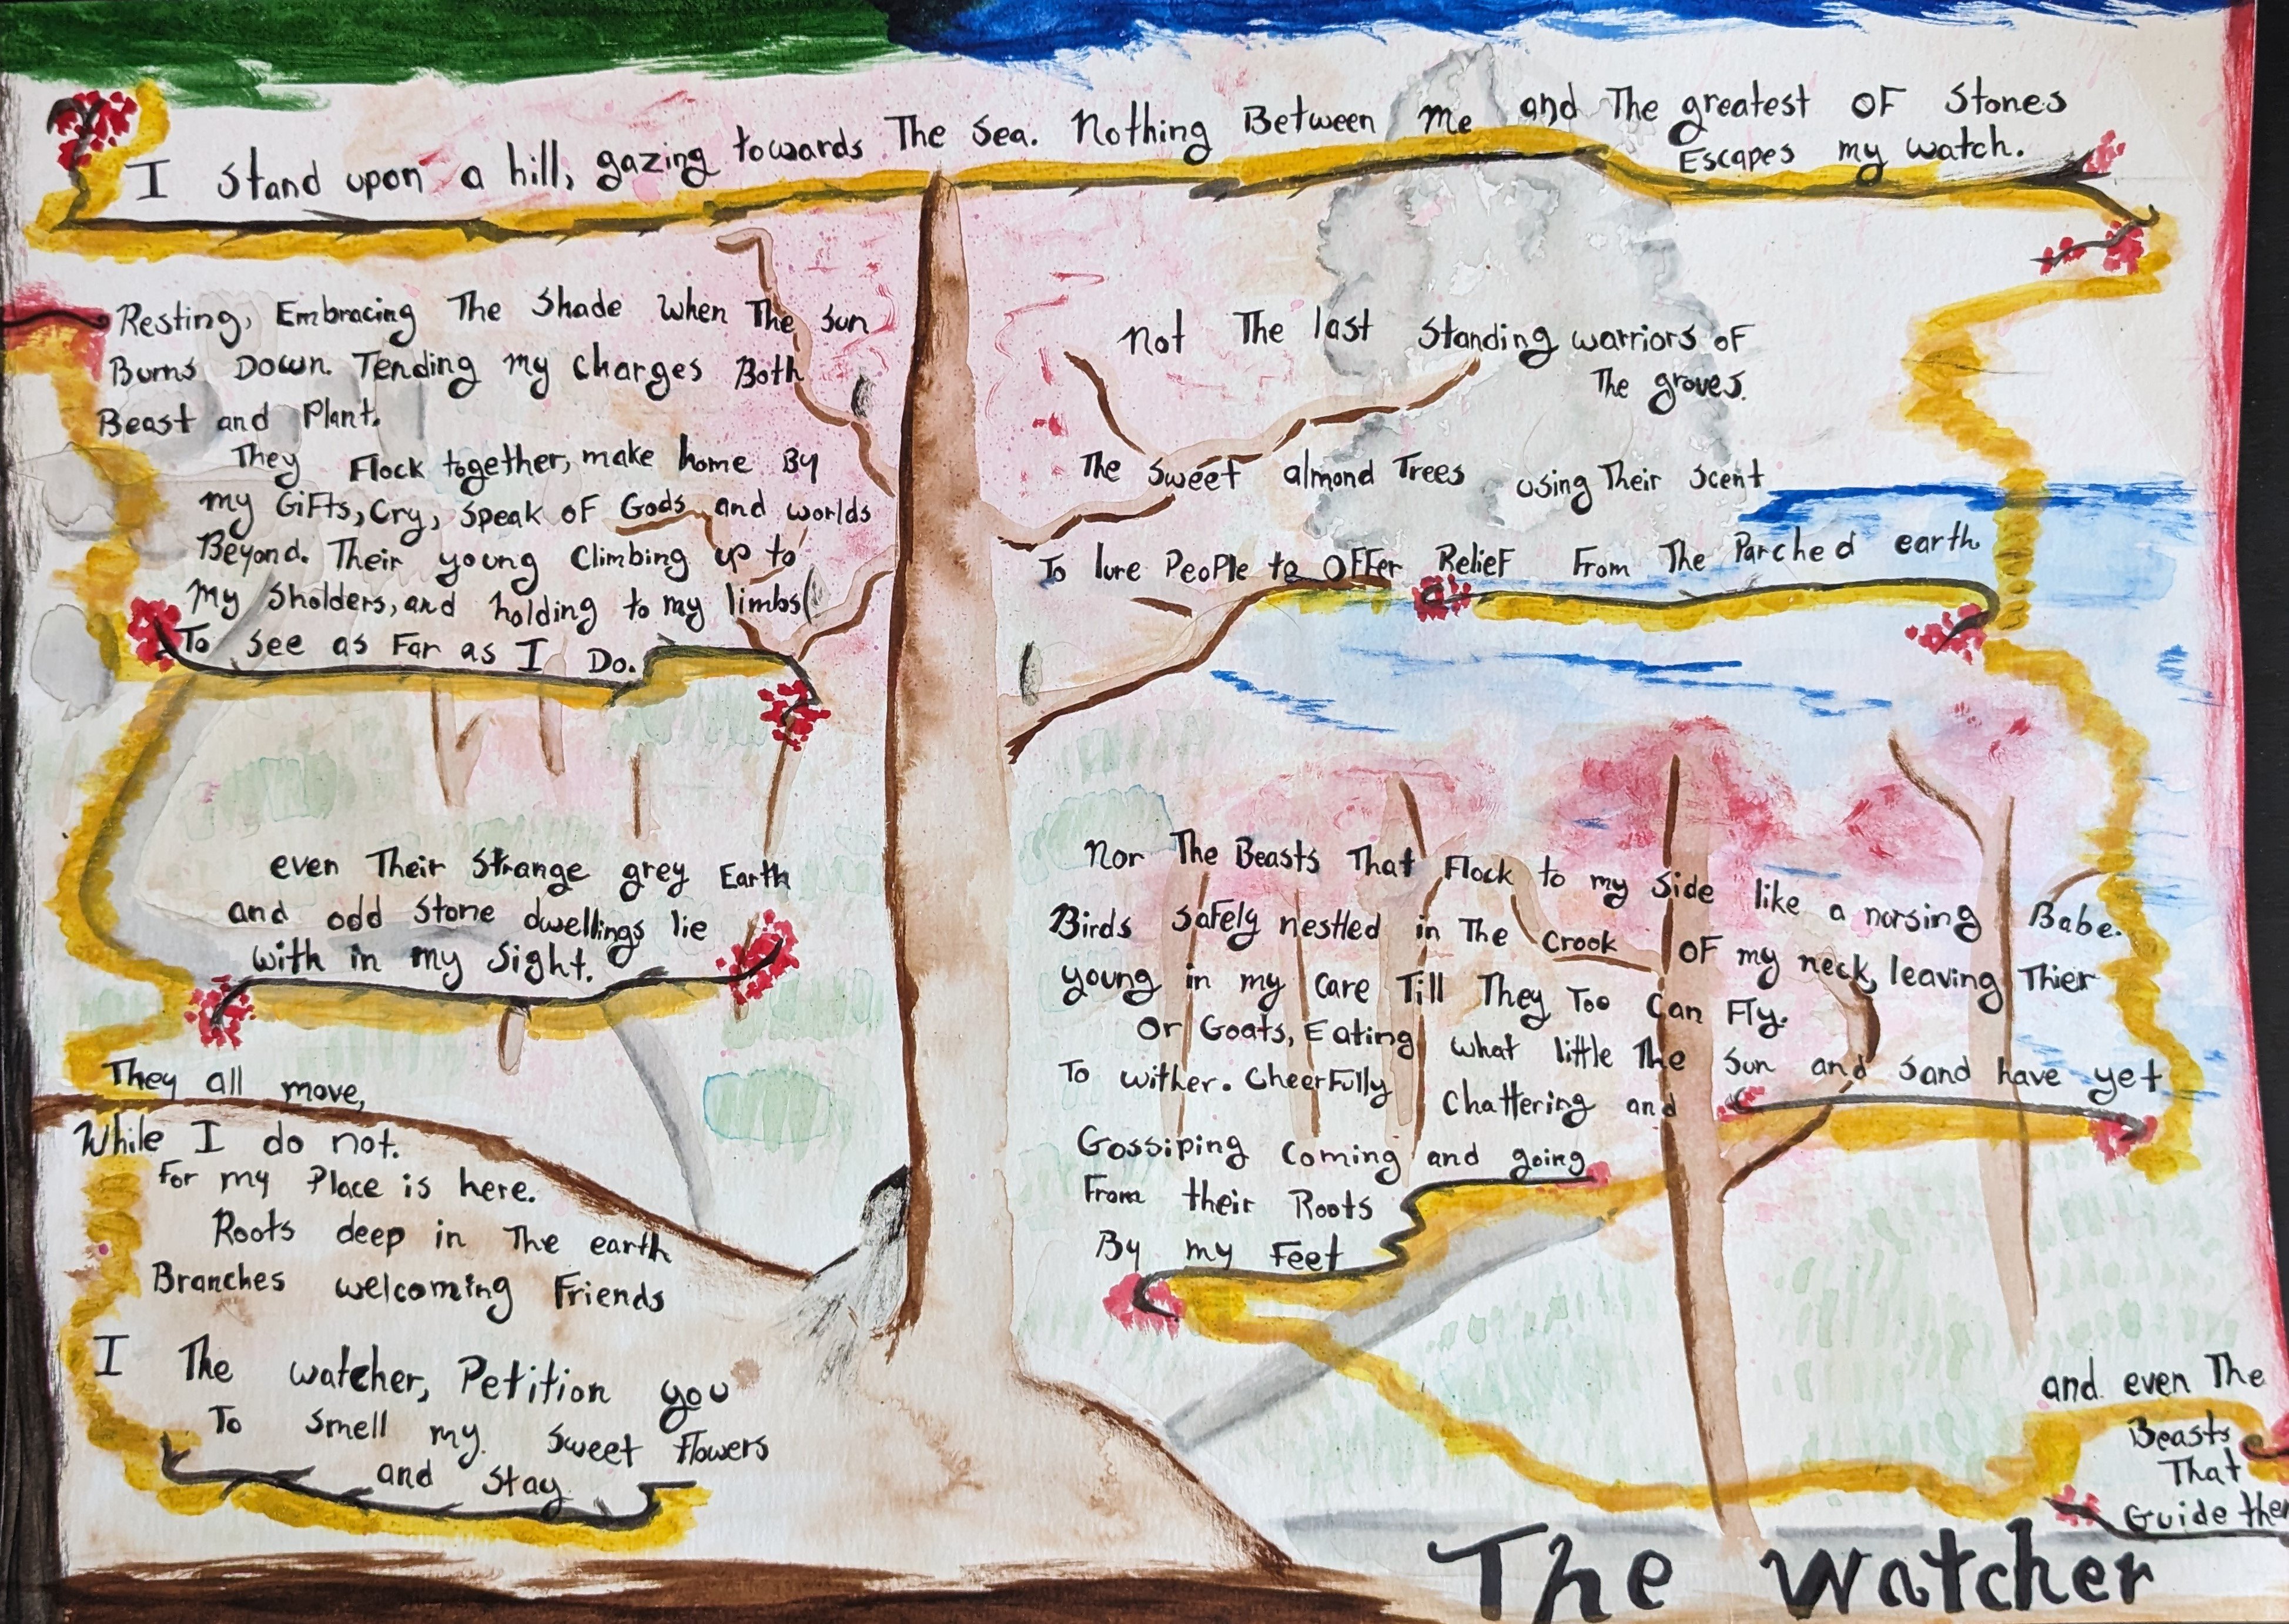 I stand upon a hill, gazing towards The Sea. Nothing Between me and The greatest OF Stones
Escapes my watch.
Not The last Standing warriors of
The groves.
The Sweet almond Trees using Their Scent
To lure People to OFFer Relief From The Parched earth
Nor The Beasts That Flock to my Side like a norsing Babe.
Birds Safely nestled in The Crook OF my neck, leaving Thier
young in my care Till They Too Can Fly.
Or Goats, Eating what little The Sun and Sand have yet
To wither. Cheerfully Chattering and
Gossiping Coming and going
From their Roots
By my Feet
and even The
Beasts
That
Guide
Resting, Embracing The Shade when The Sun
Burns Down. Tending my charges Both
Beast and Plant.
They Flock together, make home By
my Gifts, Cry, Speak oF Gods and worlds
Beyond. Their young Climbing up to
My Sholders, and holding to my limbs
To See as Far as I Do.
even Their Strange grey Earth
and odd Stone dwellings lie
with in my Sight.
They all move,
While I do not.
For my Place is here.
Roots deep in The earth
Branches welcoming Friends
I The watcher, Petition you
To Smell my. Sweet flowers
and Stay
The Watcher